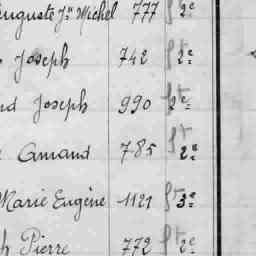 Auguste Jn Michel 777 St 2e
Joseph 742 St 2e
Joseph 990 St 2e
Amand 785 St 2e
Marie Eugène 1121 St 3e
Pierre 772 St 2e